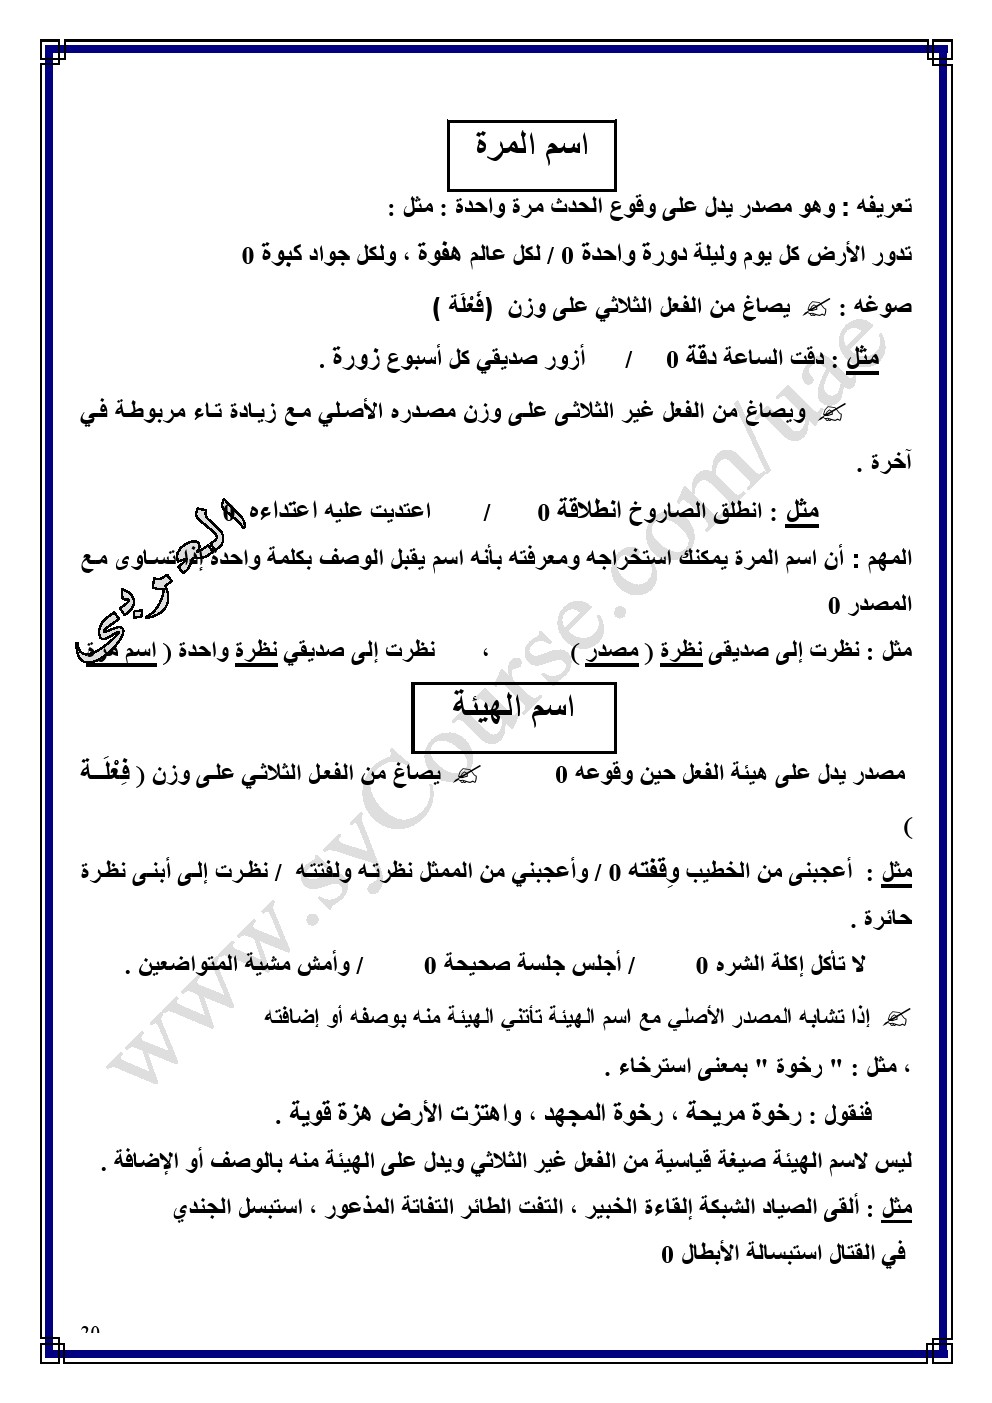 اسم المرة
تعريفه : وهو مصدر يدل على وقوع الحدث مرة واحدة : مثل :
تدور الأرض كل يوم وليلة دورة واحدة 0 / لكل عالم هفوة ، ولكل جواد كبوة 0
صوغه : يصاغ من الفعل الثلاثي على وزن (فَعْلَة )
مثل : دقت الساعة دقة 0 / أزور صديقي كل أسبوع زورة .
ويصاغ من الفعل غير الثلاثى على وزن مصدره الأصلي مع زيادة تاء مربوطة في
آخرة .
مثل : انطلق الصاروخ انطلاقة 0 / اعتديت عليه اعتداءه 0
المهم : أن اسم المرة يمكنك استخراجه ومعرفته بأنه اسم يقبل الوصف بكلمة واحدة إذا تساوى مع
المصدر 0
مثل : نظرت إلى صديقى نظرة ( مصدر ) ، نظرت إلى صديقي نظرة واحدة ( اسم مرة
اسم الهيئة
مصدر يدل على هيئة الفعل حين وقوعه 0 يصاغ من الفعل الثلاثي على وزن ( فِعْلَــة
)
مثل : أعجبنى من الخطيب وِقفته 0 / وأعجبني من الممثل نظرته ولفتته / نظرت إلى أبنى نظرة
حائرة .
لا تأكل إكلة الشره 0 / أجلس جلسة صحيحة 0 / وأمش مشية المتواضعين .
إذا تشابه المصدر الأصلي مع اسم الهيئة تأتني الهيئة منه بوصفه أو إضافته
، مثل : " رخوة " بمعنى استرخاء .
فنقول : رخوة مريحة ، رخوة المجهد ، واهتزت الأرض هزة قوية .
ليس لاسم الهيئة صيغة قياسية من الفعل غير الثلاثي ويدل على الهيئة منه بالوصف أو الإضافة .
مثل : ألقى الصياد الشبكة إلقاءة الخبير ، التفت الطائر التفاتة المذعور ، استبسل الجندي
في القتال استبسالة الأبطال 0
20
www.syCourse.com/uae